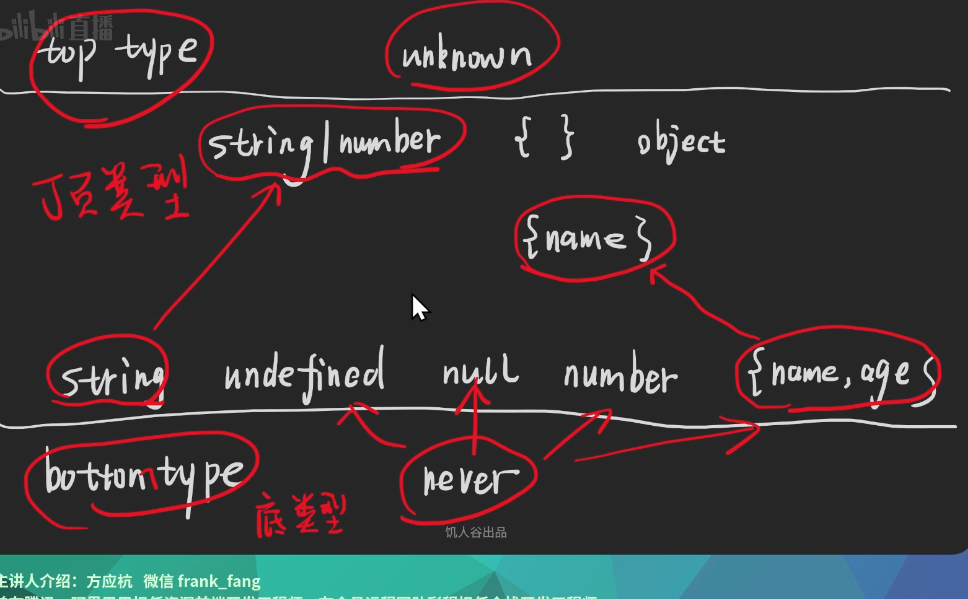 bilibili直播
top type unknown
string|number { } object
顶类型
{name}
string undefined null number {name, age}
bottom type never
底类型
饥人谷出品
主讲人介绍：方应杭 微信 frank_fang